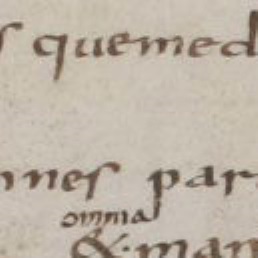 s quemed
nnes par
omnia
& man